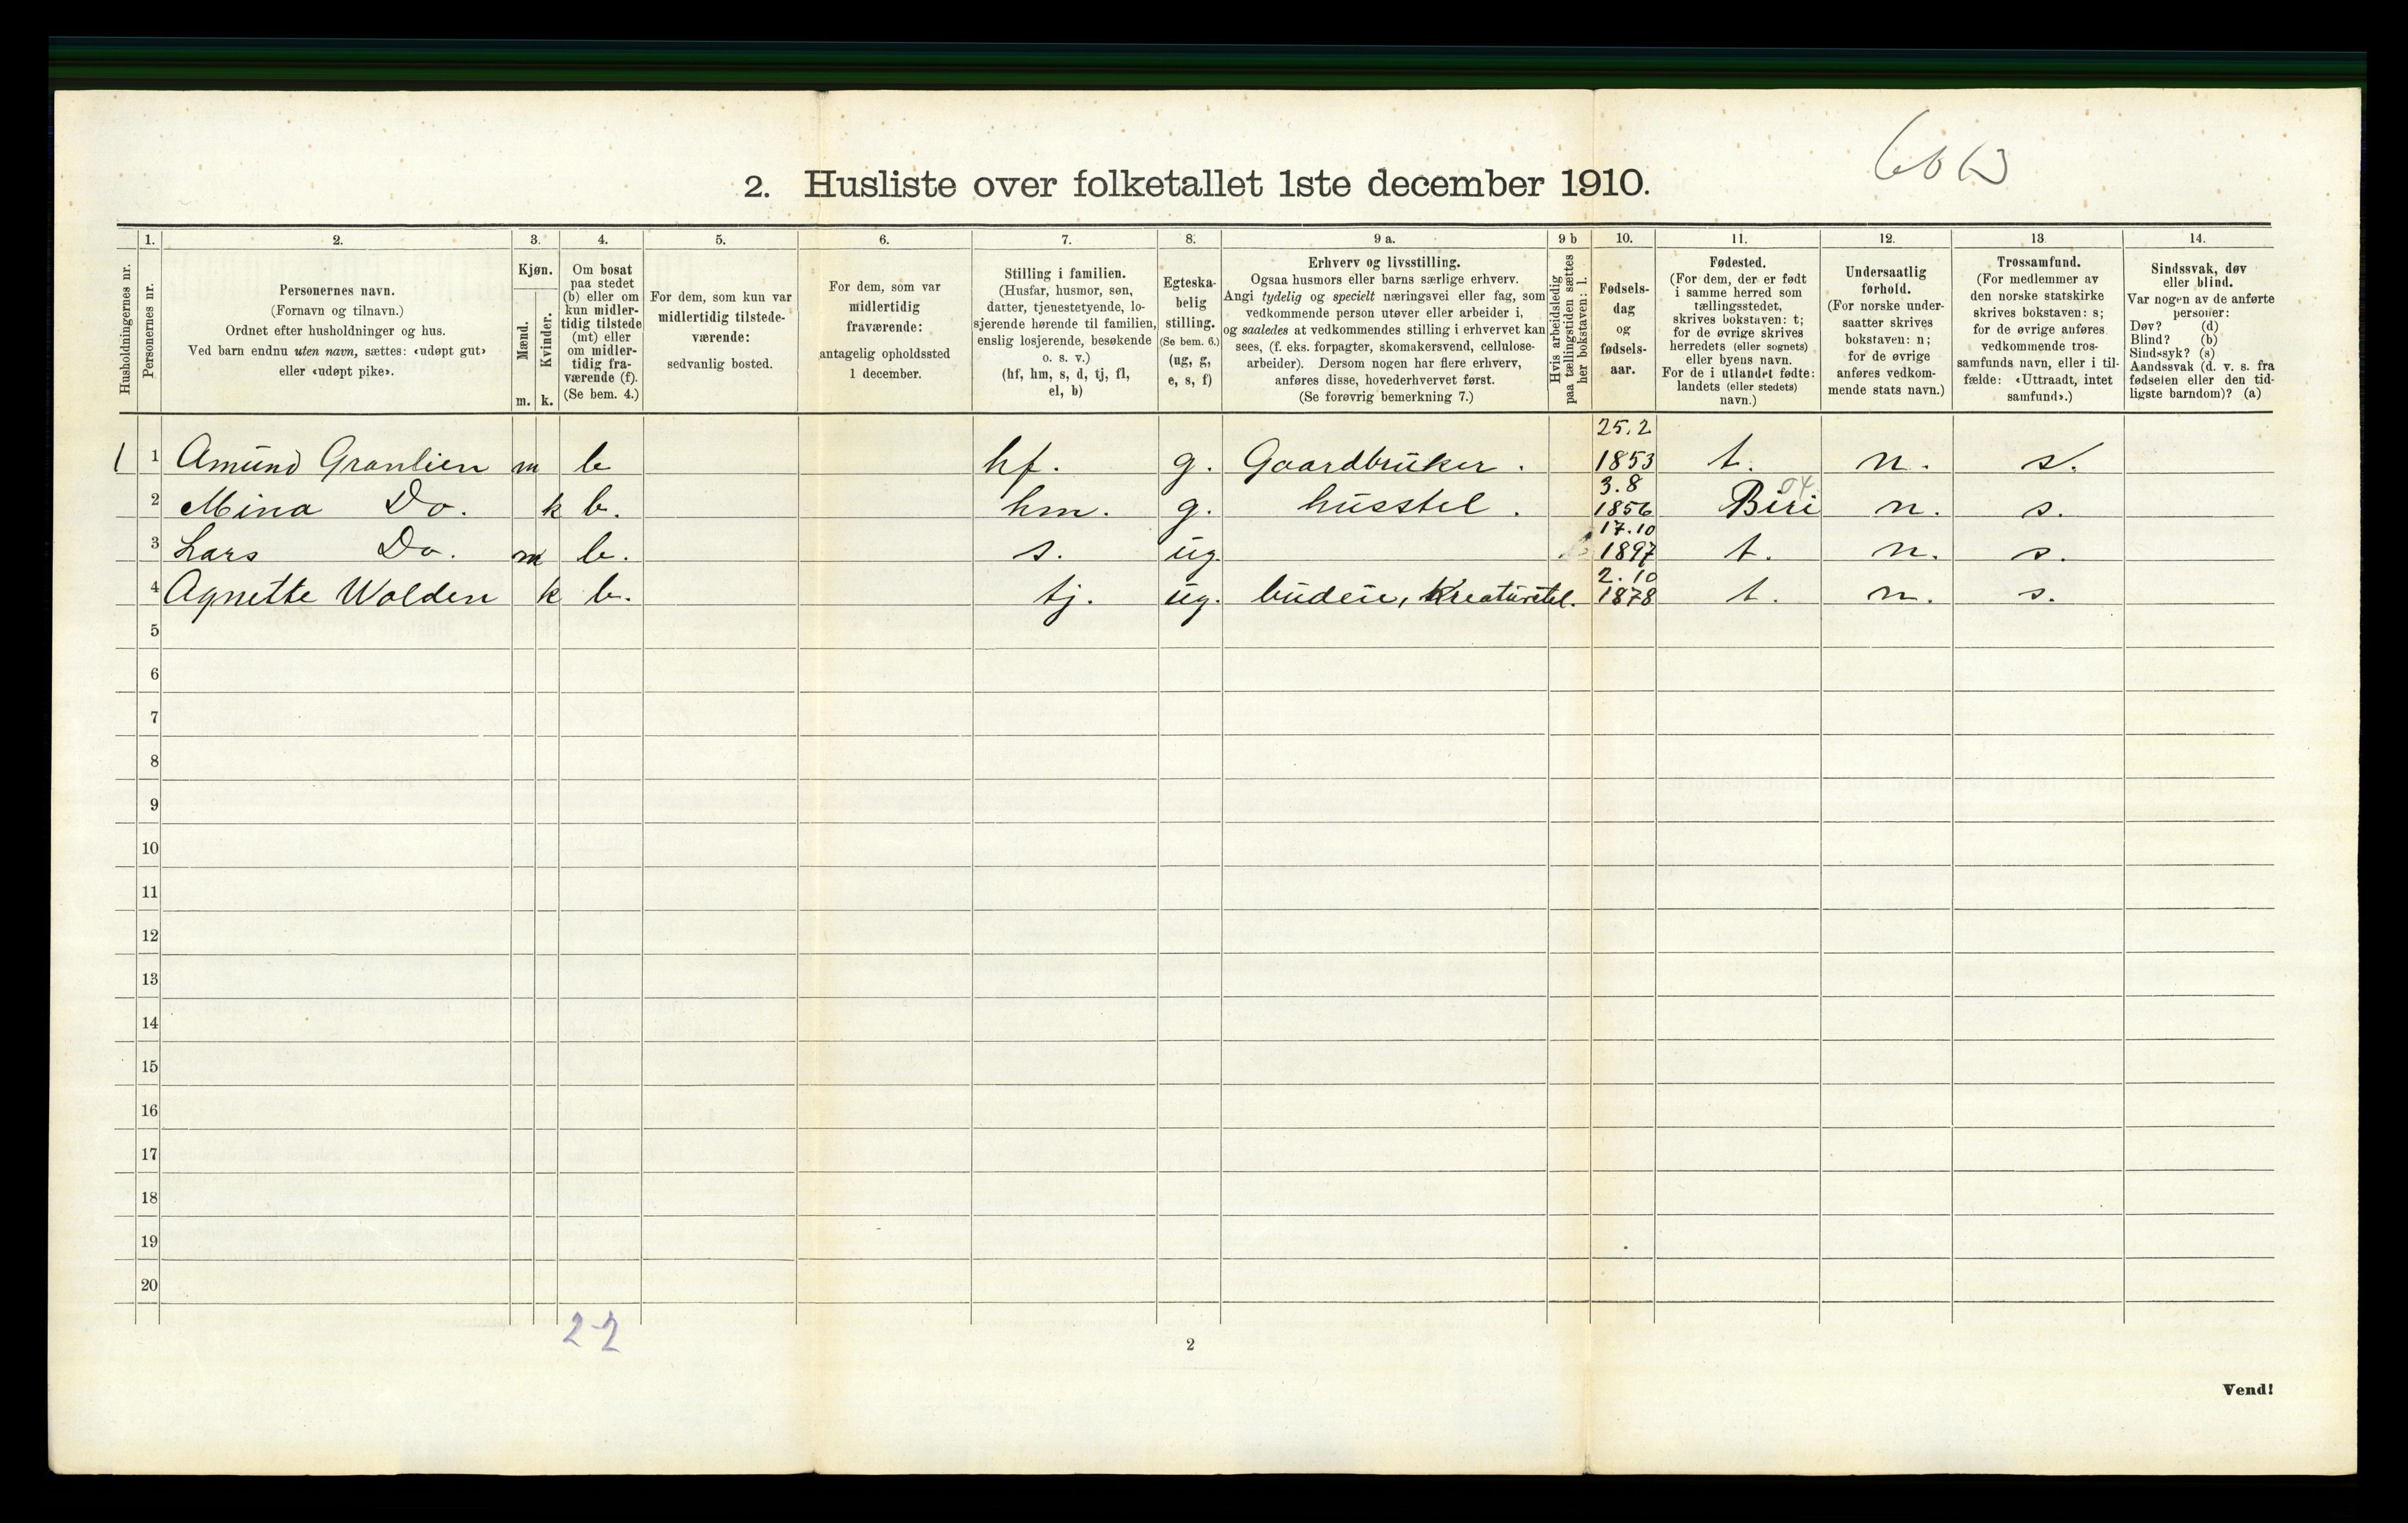 2. Husliste over folketallet 1ste december 1910.
Husholdningernes nr.
1.
Personernes nr.
2.
Personernes navn.
(Fornavn og tilnavn.)
Ordnet efter husholdninger og hus.
Ved barn endnu uten navn, sættes: «udøpt gut»
eller «udøpt pike».
3.
Kjøn.
Mænd.
Kvinder.
m. k.
4.
Om bosat
paa stedet
(b) eller om
kun midler-
tidig tilstede
(mt) eller
om midler-
tidig fra-
værende (f).
(Se bem. 4.)
5.
For dem, som kun var
midlertidig tilstede-
værende:
sedvanlig bosted.
6.
For dem, som var
midlertidig
fraværende:
antagelig opholdssted
1 december.
7.
Stilling i familien.
(Husfar, husmor, søn,
datter, tjenestetyende, lo-
sjerende hørende til familien,
enslig losjerende, besøkende
o. s. v.)
(hf, hm, s, d, tj, fl,
el, b)
8.
Egteska-
belig
stilling.
(Se bem. 6.)
(ug, g,
e, s, f)
9 a.
Erhverv og livsstilling.
Ogsaa husmors eller barns særlige erhverv.
Angi tydelig og specielt næringsvei eller fag, som
vedkommende person utøver eller arbeider i,
og saaledes at vedkommendes stilling i erhvervet kan
sees, (f. eks. forpagter, skomakersvend, cellulose-
arbeider). Dersom nogen har flere erhverv,
anføres disse, hovederhvervet først.
(Se forøvrig bemerkning 7.)
9 b
Hvis arbeidsledig
paa tællingstiden sættes
her bokstaven: l.
10.
Fødsels-
dag
og
fødsels-
aar.
11.
Fødested.
(For dem, der er født
i samme herred som
tællingsstedet,
skrives bokstaven: t;
for de øvrige skrives
herredets (eller sognets)
eller byens navn.
For de i utlandet fødte:
landets (eller stedets)
navn.)
12.
Undersaatlig
forhold.
(For norske under-
saatter skrives
bokstaven: n;
for de øvrige
anføres vedkom-
mende stats navn.)
13
Trossamfund.
(For medlemmer av
den norske statskirke
skrives bokstaven: s;
for de øvrige anføres
vedkommende tros-
samfunds navn, eller i til-
fælde: «Uttraadt, intet
samfund».)
14.
Sindssvak, døv
eller blind.
Var nogen av de anførte
personer:
Døv? (d)
Blind? (b)
Sindssyk? (s)
Aandssvak (d. v. s. fra
fødselen eller den tid-
ligste barndom)? (a)
1 1 Amund Granlien m b hf. g. Gaardbruker. 25.2 1853 t. n. s.
2 Mina Do. k b. hm. g. husstel. 3.8 1856 Biri 04 n. s.
3 Lars Do. m b. s. ug. 17.10 1897 t. n. s.
4 Agnette Wolden k b. tj. ug. budeie, Kreaturstel. 2.10 1878 t. n. s.
5
6
7
8
9
10
11
12
13
14
15
16
17
18
19
20
2-2
2
Vend!